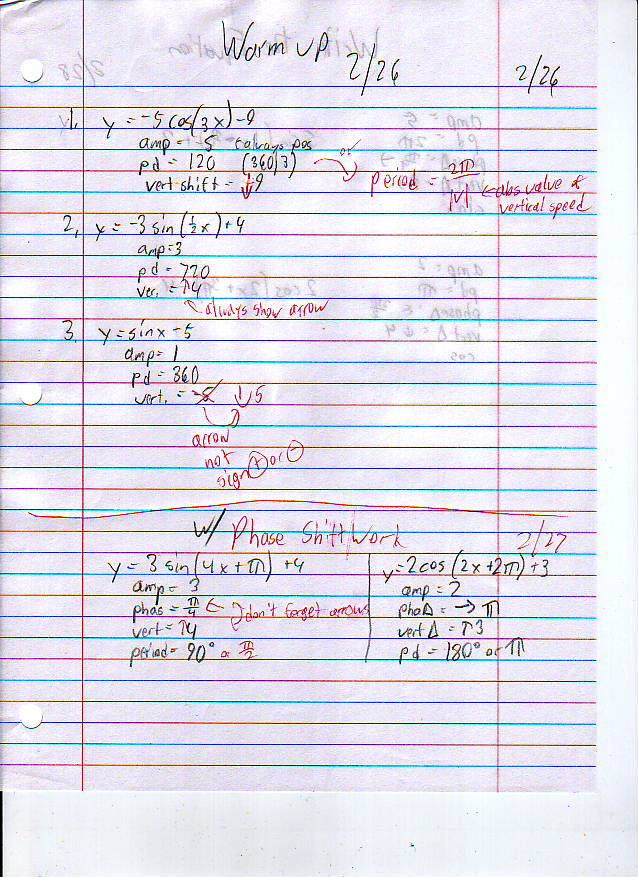 Warm up
2/26
2/26
1. y = -5 cos(3x) -9
amp = 5 (always pos
pd = 120 (360/3)
or
period = 2π/|V| ← abs value of vertical speed
vert shift = ↓9
2, y = -3 sin (½x)+4
amp=3
pd = 720
ver. = ↑4
always show arrow
3. y=sinx -5
amp= 1
pd = 360
vert. = -5 ↓5
arrow
not
sign + or -
w/ Phase Shift Work 2/27
y = 3 sin(4x + π) +4
amp= 3
phas = π/4 ← don't forget arrows
vert= ↑4
period= 90° or π/2
y=2cos (2x+2π)+3
amp = 2
phaΔ = → π
vert Δ = ↑3
pd = 180° or π